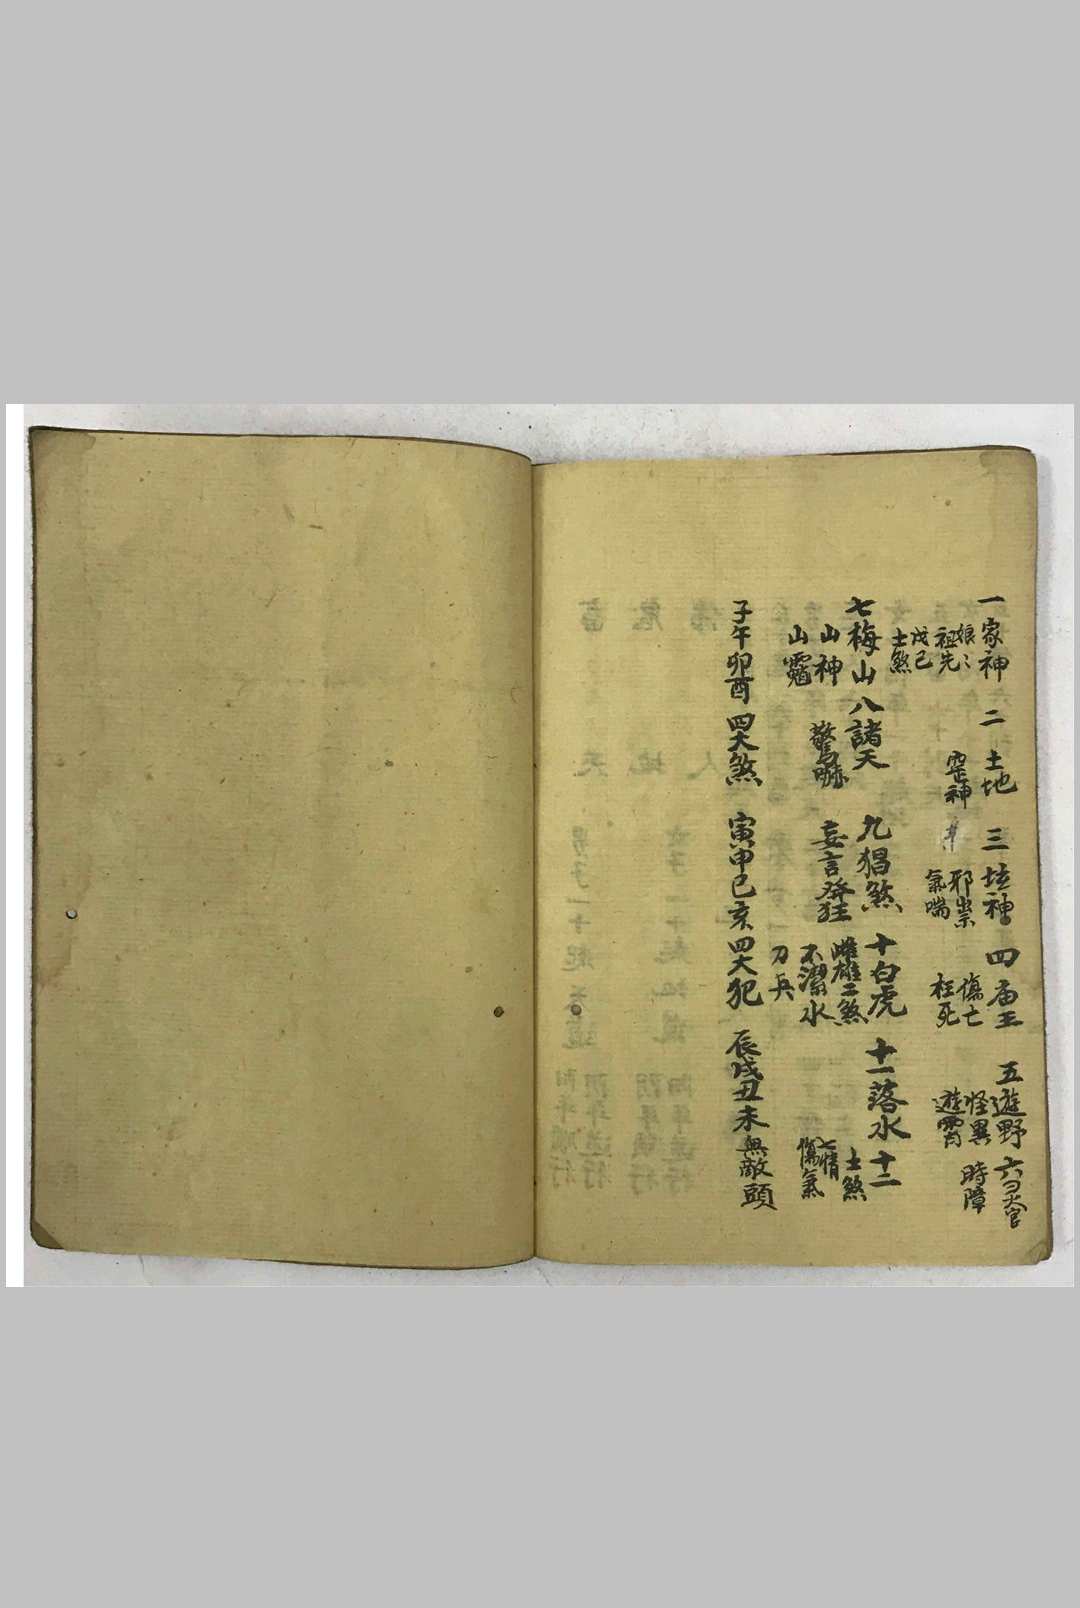 一家神 二 土地 三坛神 四庙王 五遊野 六 天官
娘〻 祖先
戊己
土煞
神
邪祟 氣喘
傷亡 枉死
怪異
時障
七梅山 八諸天 九猖煞 十白虎 十一落水 十二
山神
山
驚嚇
妄言發狂
雌雄二煞
不潔水
刀兵
土煞
七情
傷氣
子午卯酉 四大煞 寅申巳亥 四大犯 辰戌丑未 無敵頭